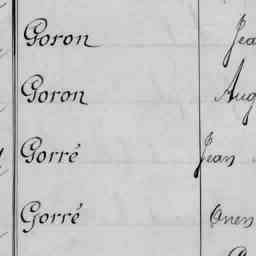 Goron Jea
Goron Aug
Gorré Jean
Gorré